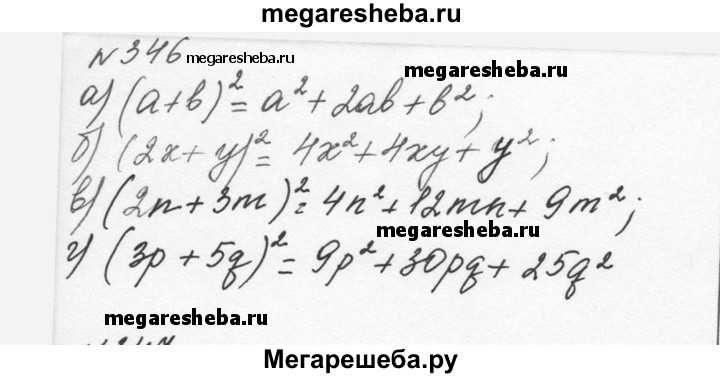 megaresheba.ru
№346 megaresheba.ru
megaresheba.ru
а) (a+b)² = a² + 2ab + b²;
б) (2x + y)² = 4x² + 4xy + y²;
в) (2n + 3m)² = 4n² + 12mn + 9m²;
megaresheba.ru
г) (3p + 5q)² = 9p² + 30pq + 25q²
megaresheba.ru
Мегарешеба.ру